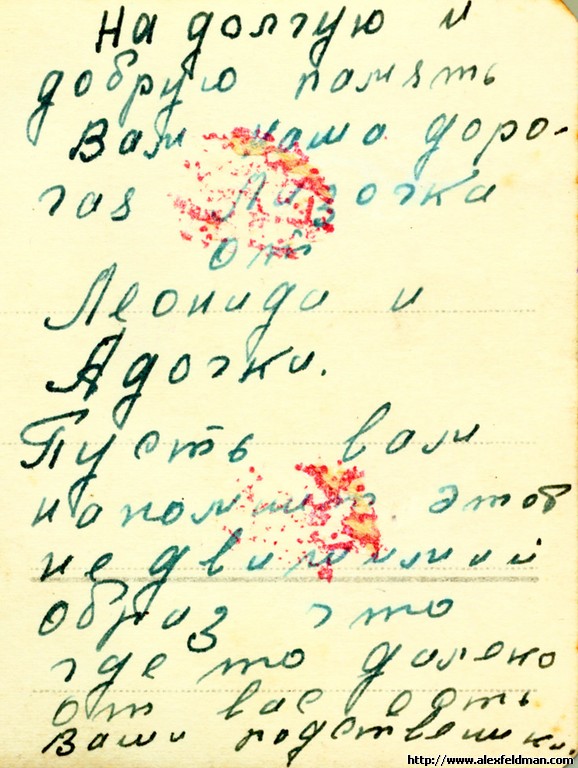 На долгую и
добрую память
Вам наша доро-
гая Лизочка
от
Леонида и
Адочки.
Пусть вам
напомнит этот
не движимий
образ что
где то далеко
от вас есть
Ваши родственики.
http://www.alexfeldman.com